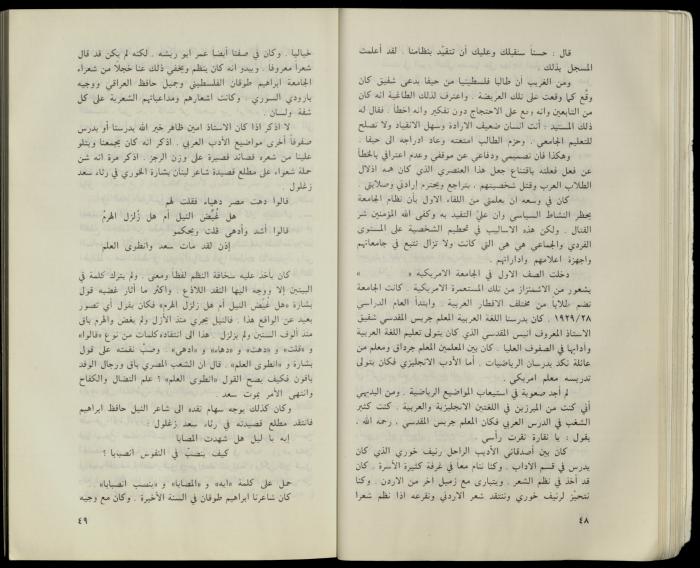 قال : حسناً سنقبلك وعليك أن تتقيّد بنظامنا . لقد أعلمت
المسجل بذلك .
ومن الغريب أن طالبا فلسطينيا من حيفا يدعى شفيق كان
وقّع كما وقعت على تلك العريضة . واعترف لذلك الطاغية انه كان
من التابعين وانه وقع على الاحتجاج دون تفكير وانه اخطأ . فقال له
ذلك المستبد : أنت انسان ضعيف الارادة وسهل الانقياد ولا تصلح
للتعليم الجامعي . وحزم الطالب امتعته وعاد ادراجه الى حيفا .
وهكذا فان تصميمي ودفاعي عن موقفي وعدم اعترافي بالخطأ
عن فعل فعلته باقتناع جعل هذا العنصري الذي كان همه اذلال
الطلاب العرب وقتل شخصيتهم ، يتراجع ويحترم إرادتي وصلابتي .
كان في وسعه ان يعلمني من اللقاء الاول بأن نظام الجامعة
يحظر النشاط السياسي وان عليّ التقيد به وكفى الله المؤمنين شر
القتال . ولكن هذه الاساليب في تحطيم الشخصية على المستوى
الفردي والجماعي هي هي التي كانت ولا تزال تتبع في جامعاتهم
واجهزة اعلامهم واداراتهم .
دخلت الصف الاول في الجامعة الامريكية « »
يشعور من الاشمئزاز من تلك المستعمرة الامريكية . كانت الجامعة
تضم طلابا من مختلف الاقطار العربية . وابتدأ العام الدراسي
١٩٢٩/٢٨ . كان يدرسنا اللغة العربية المعلم جريس المقدسي شقيق
الاستاذ المعروف انيس المقدسي الذي كان يتولى تعليم اللغة العربية
وآدابها في الصفوف العليا . كان بين المعلمين المعلم جرداق ومعلم من
عائلة نكد يدرسان الرياضيات . أما الأدب الانجليزي فكان يتولى
تدريسه معلم امريكي .
لم أجد صعوبة في استيعاب المواضيع الرياضية . ومن البديهي
أني كنت من المبرزين في اللغتين الانجليزية والعربية . كنت كثير
الشغب في الدرس العربي فكان المعلم جريس المقدسي ، رحمه الله ،
يقول : يا نقارة نقرت رأسي .
كان بين أصدقائي الأديب الراحل رئيف خوري الذي كان
يدرس في قسم الاداب . وكنا ننام معاً في غرفة كثيرة الأسرة . كان
قد أخذ في نظم الشعر . ويتبارى مع زميل اخر من الاردن . وكنا
نتحيّز لرئيف خوري وننتقد شعر الاردني ونقرعه اذا نظم شعرا
٤٨
خياليا . وكان في صفنا أيضاً عمر ابو ريشه . لكنه لم يكن قد قال
شعراً معروفا . ويبدو انه كان ينظم ويخفي ذلك عنا خجلاً من شعراء
الجامعة ابراهيم طوقان الفلسطيني وجميل حافظ العراقي ووجيه
بارودي السوري . وكانت اشعارهم ومداعباتهم الشعرية على كل
شفة ولسان .
لا اذكر اذا كان الاستاذ امين ظاهر خير الله يدرسنا أو يدرس
صفوفاً أخرى مواضيع الأدب العربي . اذكر انه كان يجمعنا ويتلو
علينا من شعره قصائد قصيرة على وزن الرجز . اذكر مرة انه شن
حملة شعواء على مطلع قصيدة شاعر لبنان بشارة الخوري في رثاء سعد
زغلول .
قالوا دهت مصر دهياء فقلت لهم
هل غُيّض النيل أم هل زُلزل الهرمُ
قالوا أشد وأدهى قلت ويحكمو
إذن لقد مات سعد وانطوى العلم
كان يأخذ عليه سخافة النظم لفظاً ومعنى . ولم يترك كلمة في
البيتين إلا ووجه اليها النقد اللاذع . واكثر ما أثار غضبه قول
بشارة «هل غُيّض النيل أم هل زلزل الهرم» فكان يقول أي تصور
بعيد عن الواقع هذا . فالنيل يجري منذ الأزل ولم يغض والهرم باق
منذ ألوف السنين ولم يزلزل . هذا الى انتقاده كلمات من نوع «قالوا»
و «قلت» و «دهت» و «دهياء» و «ادهى» . وصبّ نقمته على قول
بشارة و «انطوى العلم» . قال ان الشعب المصري باق ورجال الوفد
باقون فكيف يصح القول «انطوى العلم» ؟ علم النضال والكفاح
وانتهى الأمر بموت سعد .
وكان كذلك يوجه سهام نقده الى شاعر النيل حافظ ابراهيم
فانتقد مطلع قصيدته في رثاء سعد زغلول :
إيه يا ليل هل شهدت المصابا
كيف ينصبّ في النفوس انصبابا ؟
حمل على كلمة «ايه» و «المصابا» و «ينصب انصبابا» . .
كان شاعرنا ابراهيم طوقان في السنة الأخيرة . وكان مع وجيه
٤٩